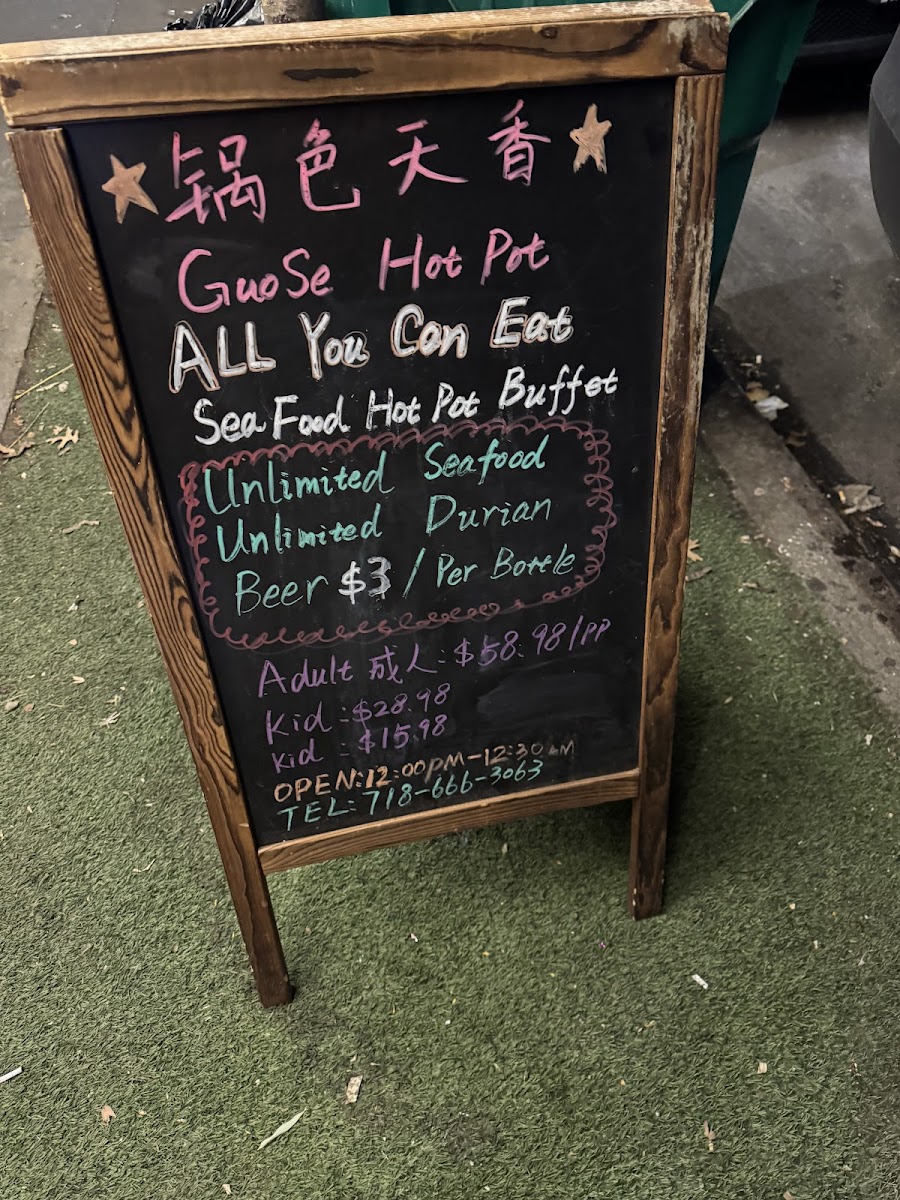 锅色天香
GuoSe Hot Pot
ALL You Can Eat
Sea Food Hot Pot Buffet
Unlimited Seafood
Unlimited Durian
Beer $3 / Per Bottle
Adult 成人: $58.98/PP
Kid: $28.98
Kid: $15.98
OPEN:12:00PM-12:30AM
TEL: 718-666-3063